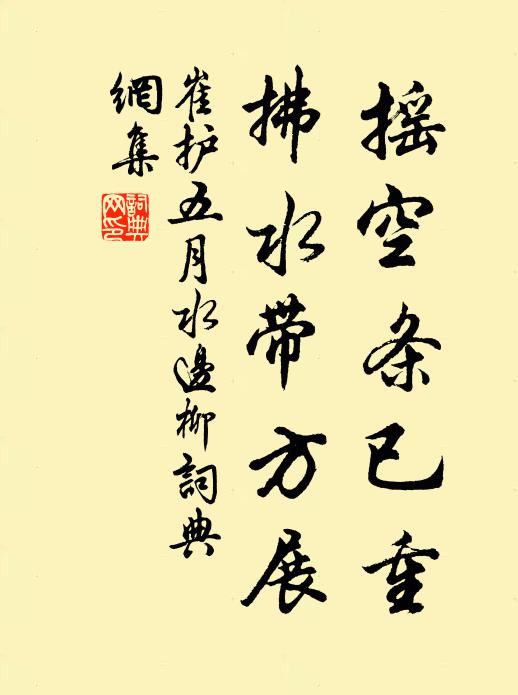 摇空条已重
拂水带方展
崔护五月水邊柳詞典
網集
詞典
网印